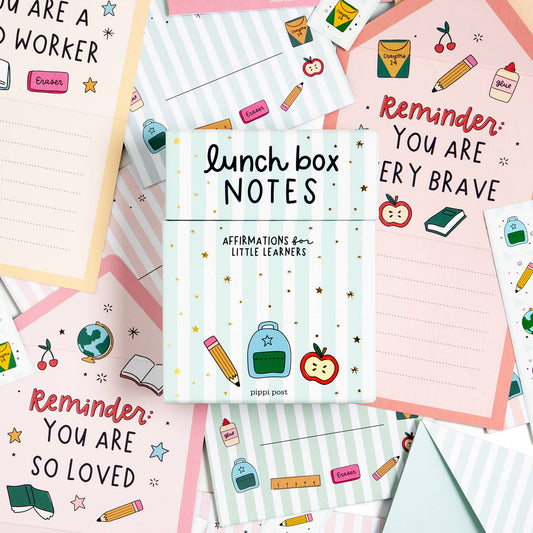 YOU ARE A
WORKER
Eraser
crayons
24
Eraser
crayons
24
glue
Reminder:
YOU ARE
VERY BRAVE
lunch box
NOTES
AFFIRMATIONS for
LITTLE LEARNERS
pippi post
Reminder:
YOU ARE
SO LOVED
glue
Eraser